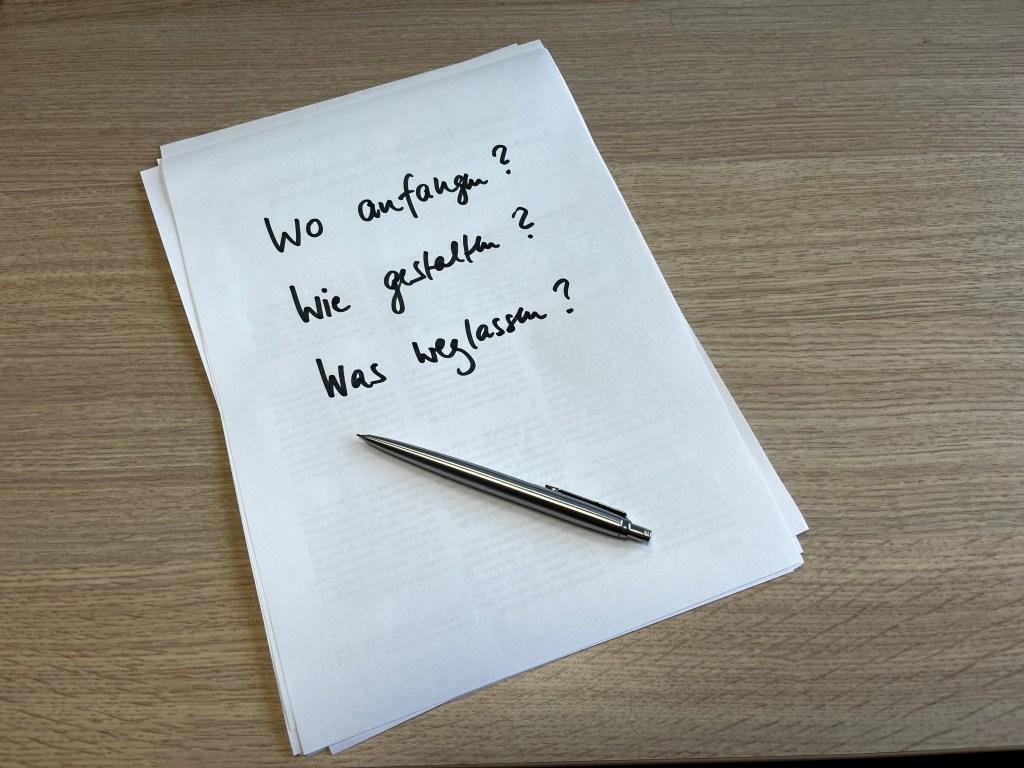 Wo anfangen?
Wie gestalten?
Was weglassen?